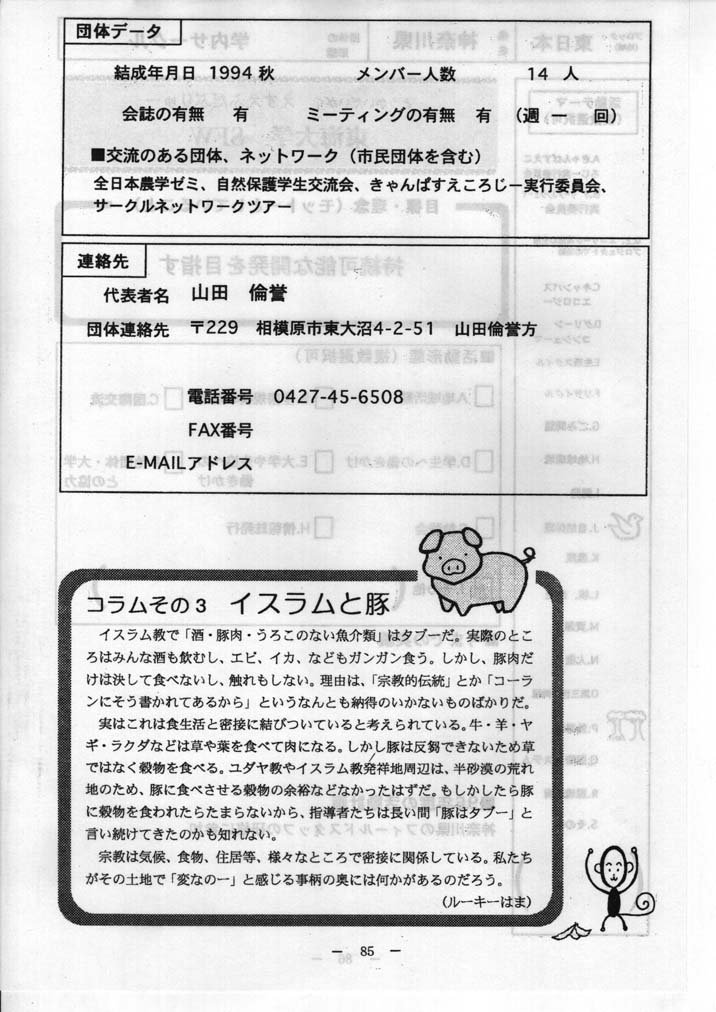 団体データ
結成年月日 1994 秋 メンバー人数 14 人
会誌の有無 有 ミーティングの有無 有 (週 一 回)
■交流のある団体、ネットワーク(市民団体を含む)
全日本農学ゼミ、自然保護学生交流会、きゃんぱすえころじー実行委員会、
サークルネットワークツアー
連絡先
代表者名 山田 倫誉
団体連絡先 〒229 相模原市東大沼4-2-51 山田倫誉方
電話番号 0427-45-6508
FAX番号
E-MAILアドレス
コラムその3 イスラムと豚
イスラム教で「酒・豚肉・うろこのない魚介類」はタブーだ。実際のとこ
ろはみんな酒も飲むし、エビ、イカ、などもガンガン食う。しかし、豚肉だ
けは決して食べないし、触れもしない。理由は、「宗教的伝統」とか「コーラ
ンにそう書かれてあるから」というなんとも納得のいかないものばかりだ。
実はこれは食生活と密接に結びついていると考えられている。牛・羊・ヤ
ギ・ラクダなどは草や葉を食べて肉になる。しかし豚は反芻できないため草
ではなく穀物を食べる。ユダヤ教やイスラム教発祥地周辺は、半砂漠の荒れ
地のため、豚に食べさせる穀物の余裕などなかったはずだ。もしかしたら豚
に穀物を食われたらたまらないから、指導者たちは長い間「豚はタブー」と
言い続けてきたのかも知れない。
宗教は気候、食物、住居等、様々なところで密接に関係している。私たち
がその土地で「変なのー」と感じる事柄の奥には何かがあるのだろう。
(ルーキーはま)
- 85 -